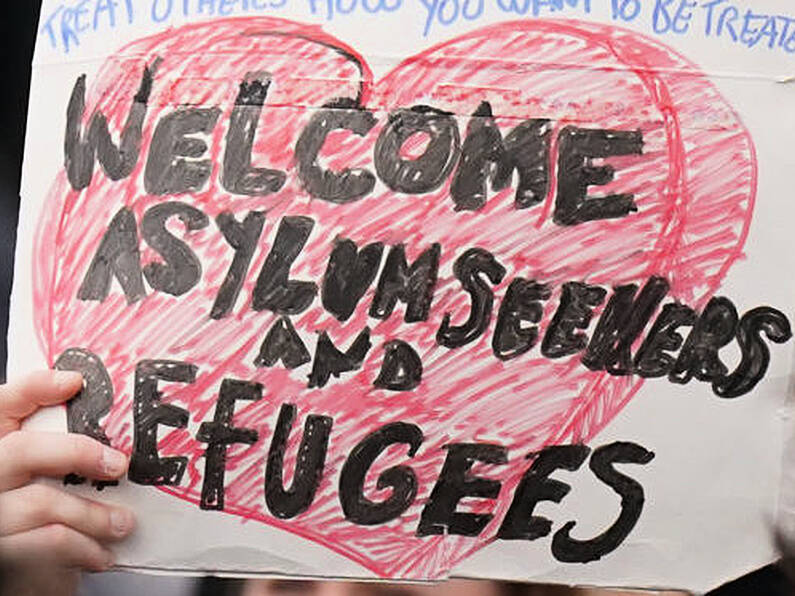 TREAT OTHERS HOW YOU WANT TO BE TREATE
WELCOME
ASYLUM SEEKERS
AND
REFUGEES